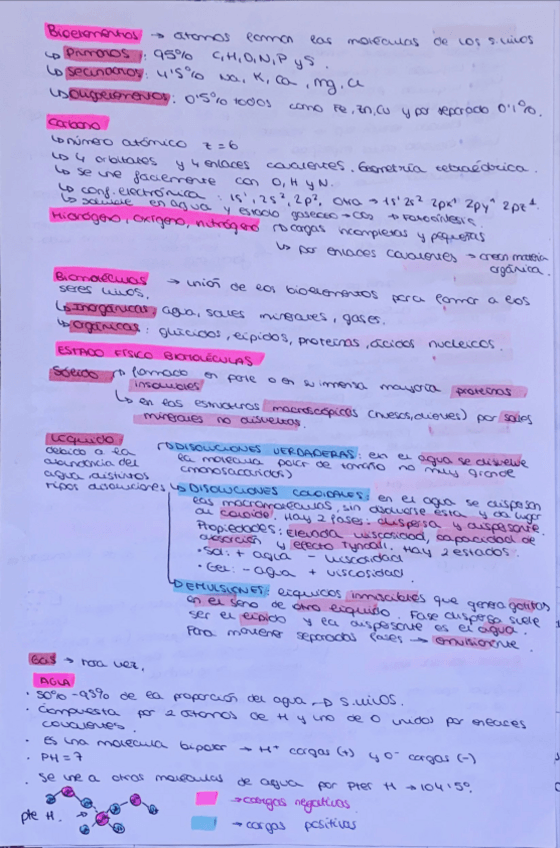 Bioelementos → atomos forman las moléculas de los s.vivos
↳ Primarios: 95% C,H,O,N,P y S.
↳ Secundarios: 4'5% Na, K, Ca, Mg, Cl
↳ Oligoelementos: 0'5% todos como Fe, Zn, Cu y por separado 0'1%.
Carbono
↳ número atómico z=6
↳ 4 orbitales y 4 enlaces covalentes, Geometría tetraédrica.
↳ se une facilmente con O, H y N.
↳ conf. electrónica: 1s², 2s², 2p², otra → 1s² 2s² 2px¹ 2py¹ 2pz¹.
↳ soluble en agua y estado gaseoso → CO₂ → Fotosíntesis.
Hidrógeno, oxígeno, nitrógeno ↱ cargas incompletas y pequeñas
↳ por enlaces covalentes → crean materia
orgánica.
Biomoléculas → unión de los bioelementos para formar a los
seres vivos.
↳ Inorgánicas, agua, sales minerales, gases.
↳ orgánicas: glúcidos, lípidos, proteínas, ácidos nucleicos.
ESTADO FÍSICO BIOMOLÉCULAS
Sólido → formado en parte o en su inmensa mayoría proteínas
insolubles
↳ en las estructuras macroscópicas (huesos, dientes) por sales
minerales no disueltas.
Líquido
debido a la
abundancia del
agua distintos
tipos disoluciones
DISOLUCIONES VERDADERAS: en el agua se disuelve
la molécula polar de tamaño no muy grande
(monosacáridos)
↳ DISOLUCIONES COLOIDALES: en el agua se dispersan
las macromoléculas, sin disolverse esta y da lugar
al coloide. Hay 2 fases: dispersa y dispersante.
Propiedades: Elevada viscosidad, capacidad de
adsorción y efecto Tyndall. Hay 2 estados.
• Sol: + agua - viscosidad
• Gel: - agua + viscosidad
EMULSIONES: líquidos inmiscibles que genera gotitas
en el seno de otro líquido. Fase dispersa suele
ser el lípido y la dispersante es el agua.
Para mantener separadas fases → emulsionante.
Gas → rara vez.
AGUA
• 50% - 95% de la proporción del agua → s.vivos.
• Compuesta por 2 átomos de H y uno de O unidos por enlaces
covalentes.
• Es una molécula bipolar → H⁺ cargas (+) y O⁻ cargas (-)
• PH = 7
• Se une a otras moléculas de agua por Ptes H → 104'5º.
pte H.
→ cargas negativas
→ cargas positivas